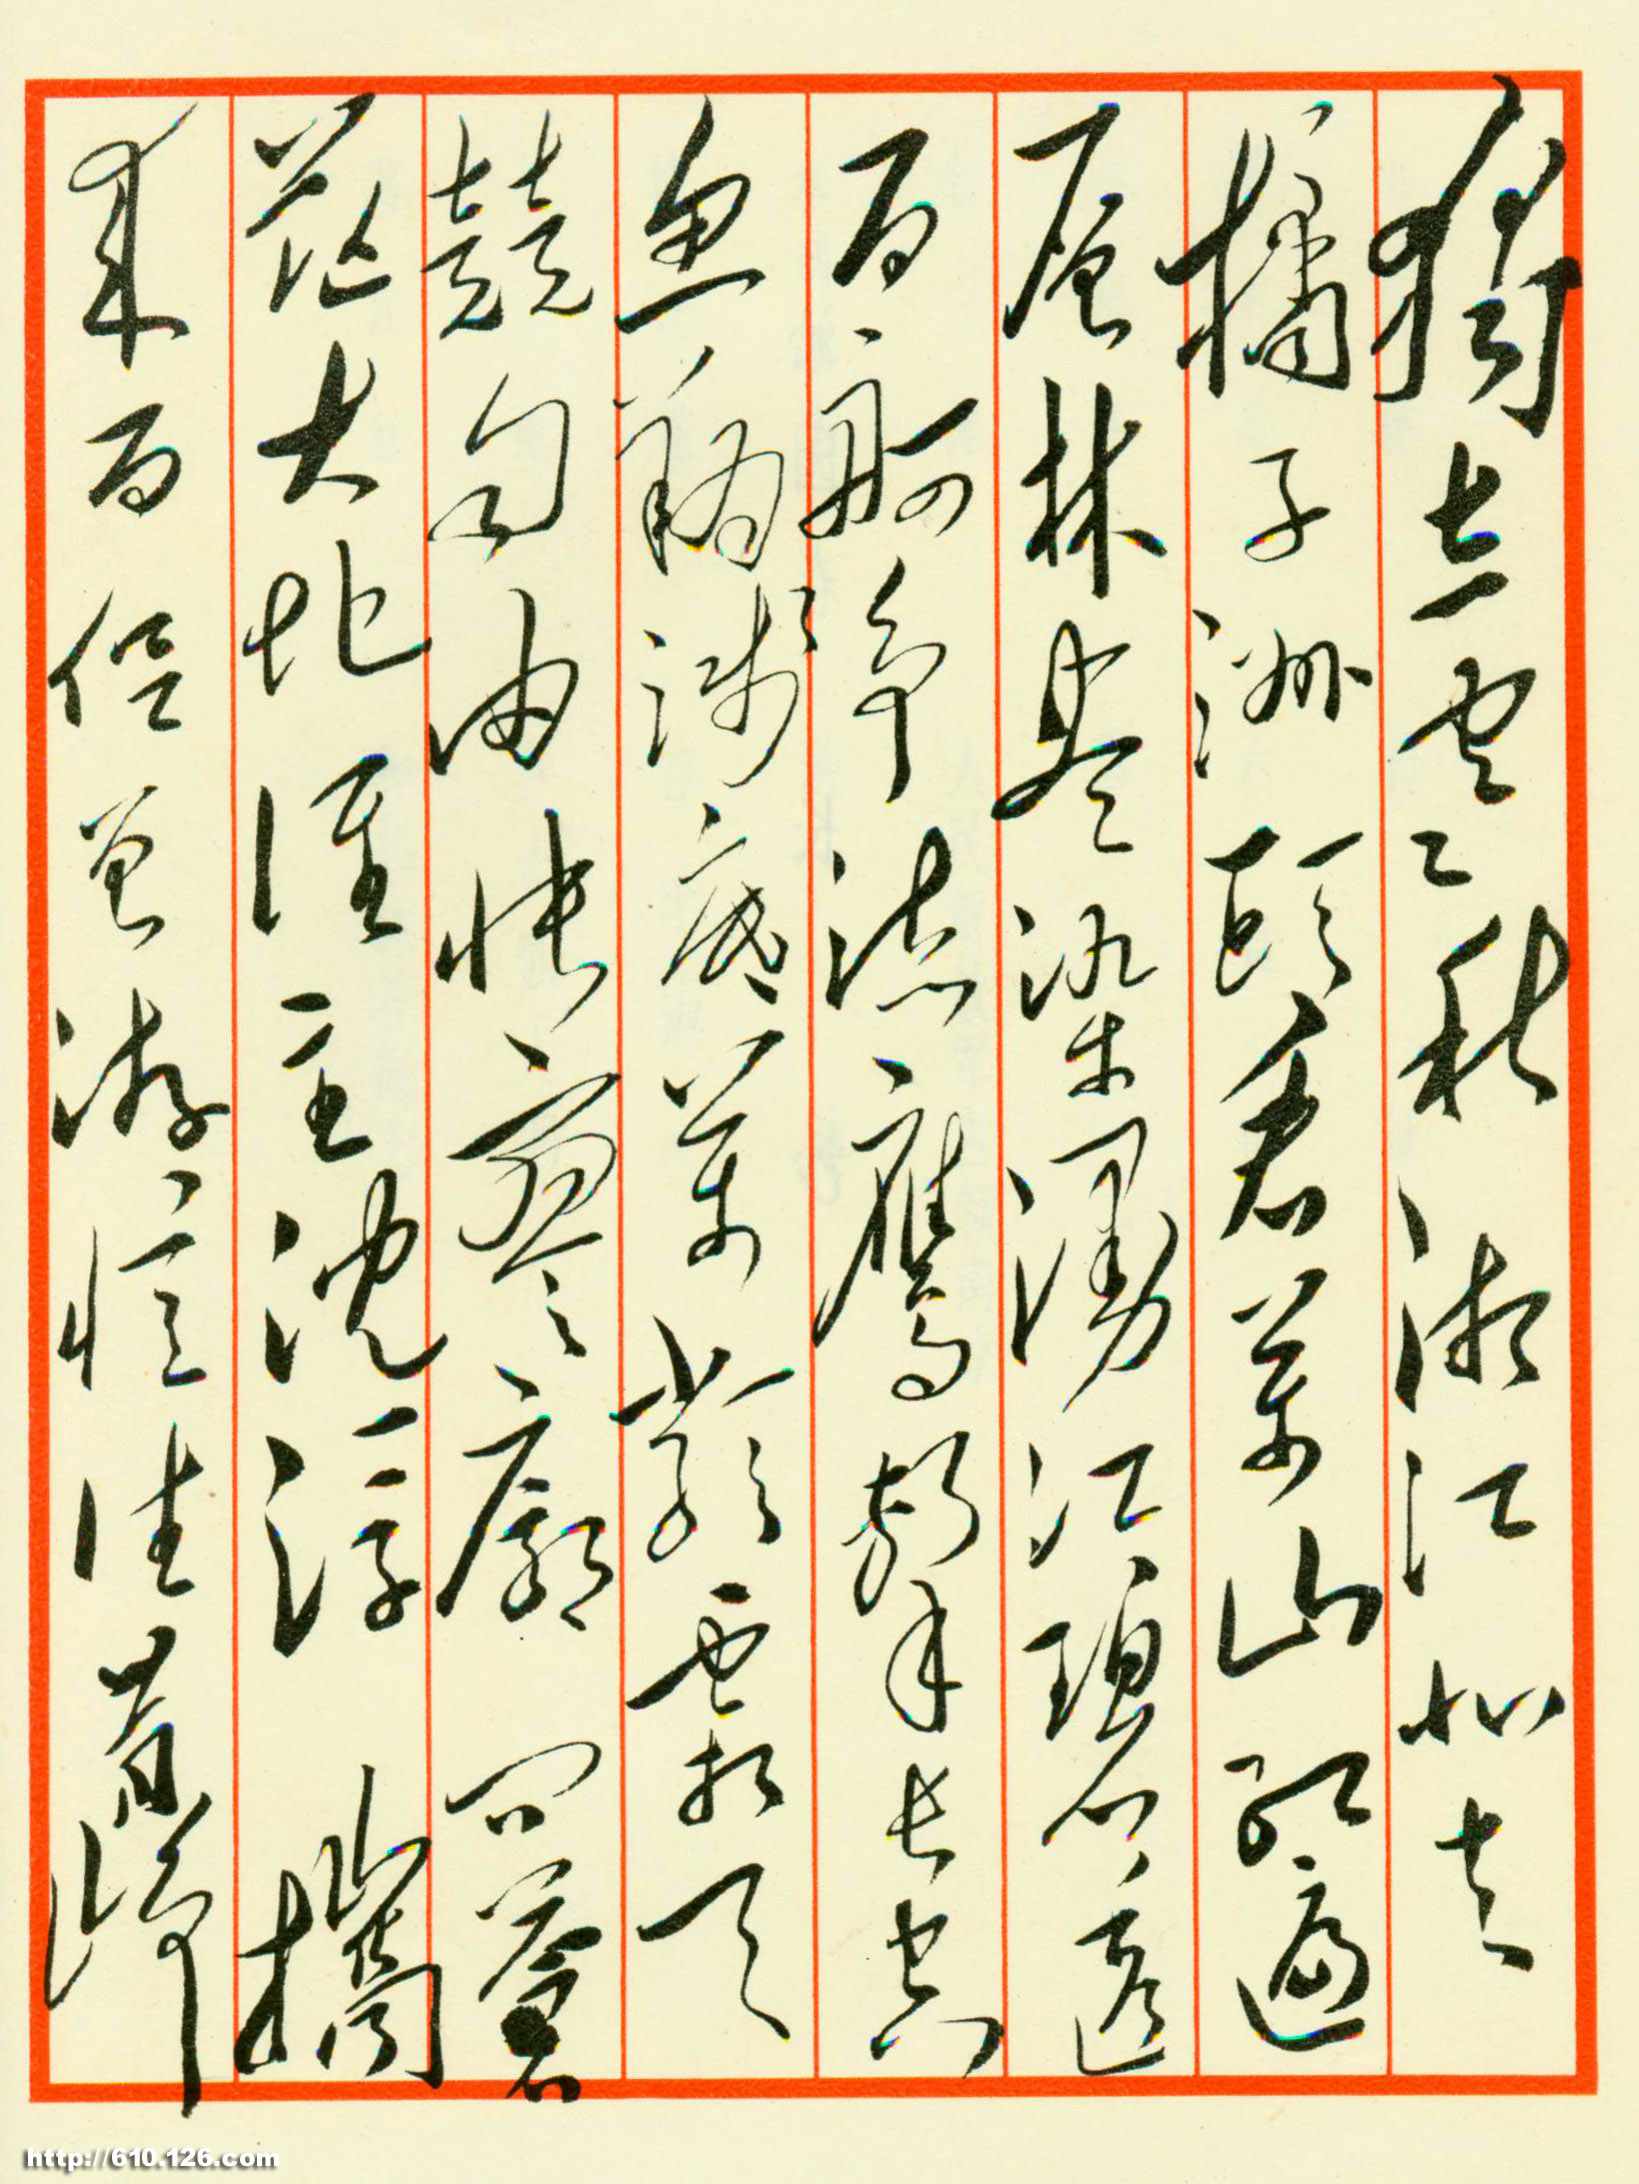 獨立寒秋湘江北去
橘子洲頭看萬山紅遍
層林盡染漫江碧透
百舸爭流鷹擊長空
魚翔淺底萬類霜天
競自由悵寥廓問蒼
茫大地誰主沈浮攜
來百侶曾游憶往昔崢
http://610.126.com